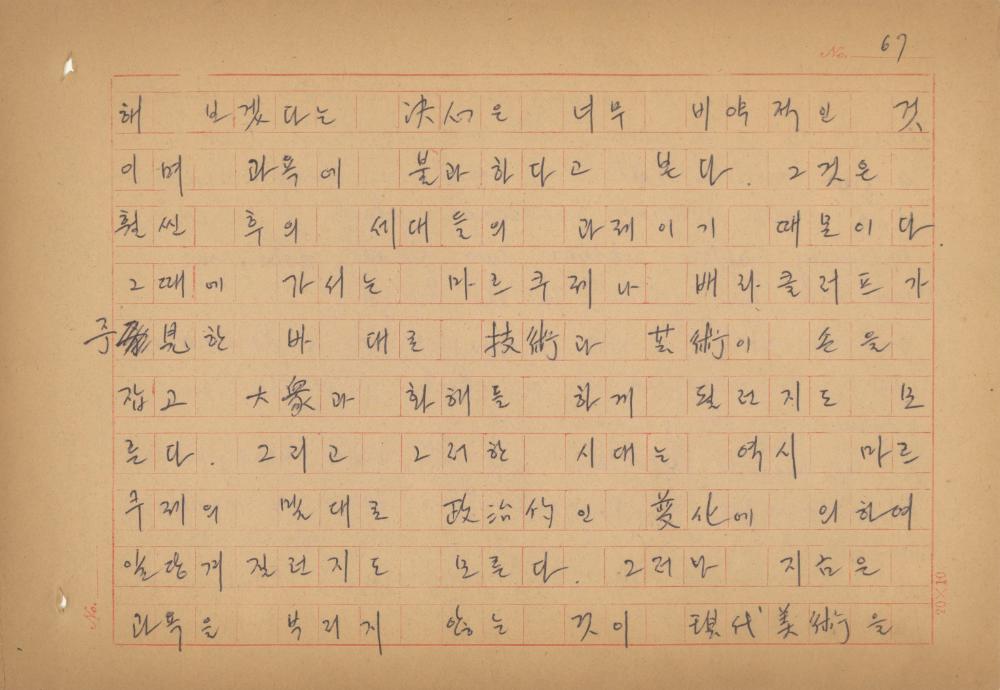 No. 67
해 보겠다는 決心은 너무 비약적인 것
이며 과욕에 불과하다고 본다. 그것은
훨씬 후의 세대들의 과제이기 때문이다.
그때에 가서는 마르쿠제나 배라클러프가
주 見한 바 대로 技術과 芸術이 손을
잡고 大衆과 화해를 하게 될런지도 모
른다. 그리고 그러한 시대는 역시 마르
쿠제의 말대로 政治的인 変化에 의하여
앞당겨질런지도 모른다. 그러나 지금은
과욕을 부리지 않는 것이 現代美術을
No.
20×10